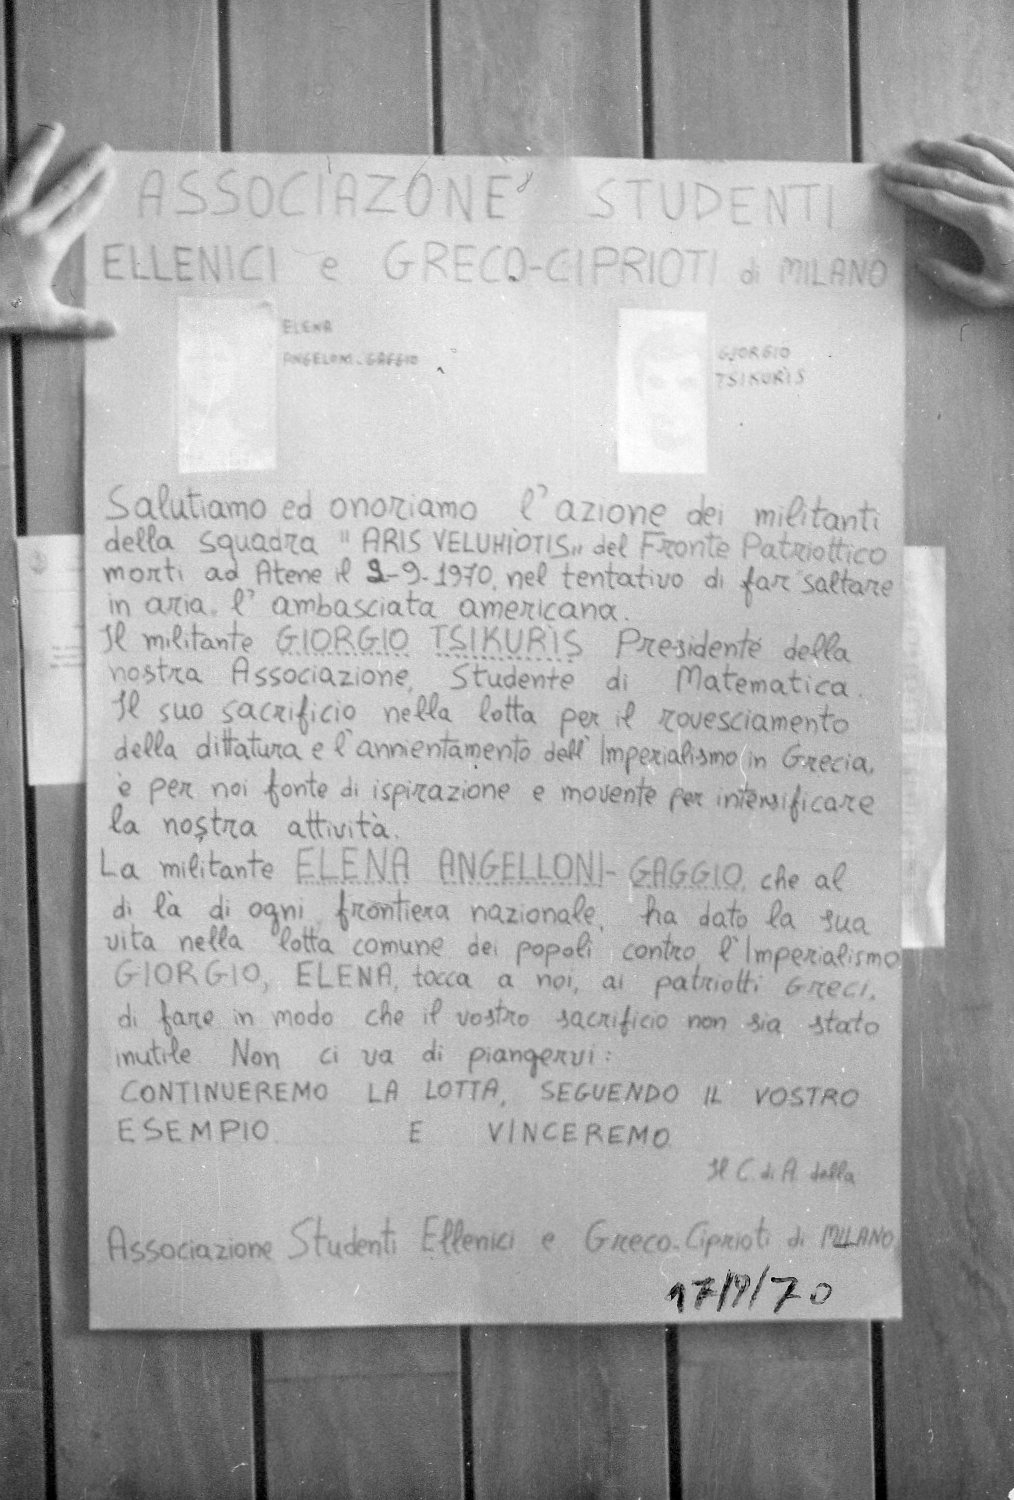 ASSOCIAZONE STUDENTI
ELLENICI e GRECO-CIPRIOTI di MILANO
ELENA
ANGELONI-GAGGIO
GJORGIO
TSIKURIS
Salutiamo ed onoriamo l'azione dei militanti
della squadra "ARIS VELUHIOTIS" del Fronte Patriottico
morti ad Atene il 2-9-1970, nel tentativo di far saltare
in aria l'ambasciata americana.
Il militante GIORGIO TSIKURIS Presidente della
nostra Associazione, Studente di Matematica.
Il suo sacrificio nella lotta per il rovesciamento
della dittatura e l'annientamento dell'Imperialismo in Grecia,
è per noi fonte di ispirazione e movente per intensificare
la nostra attività.
La militante ELENA ANGELLONI-GAGGIO, che al
di là di ogni frontiera nazionale, ha dato la sua
vita nella lotta comune dei popoli contro l'Imperialismo
GIORGIO, ELENA, tocca a noi, ai patriotti Greci,
di fare in modo che il vostro sacrificio non sia stato
inutile. Non ci va di piangervi:
CONTINUEREMO LA LOTTA, SEGUENDO IL VOSTRO
ESEMPIO E VINCEREMO
Il C. di A. della
Associazione Studenti Ellenici e Greco-Ciprioti di MILANO
17/9/70